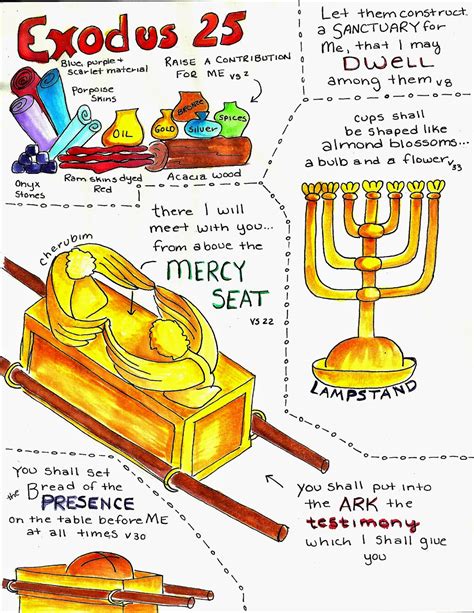 Exodus 25
Blue, purple +
Scarlet material
RAISE A CONTRIBUTION
FOR ME vs 2
Porpoise
Skins
OIL
GOLD
BRONZE
Silver
SPICES
Onyx
Stones
Ram skins dyed
Red
Acacia wood
Let them construct
a SANCTUARY for
Me, that I may
DWELL
among them v8
cups shall
be shaped like
almond blossoms...
a bulb and a flower v33
LAMPSTAND
cherubim
there I will
meet with you...
from above the
MERCY
SEAT
vs 22
You shall set
the Bread of the
PRESENCE
on the table before ME
at all times v30
you shall put into
the ARK the
testimony
which I shall give
you